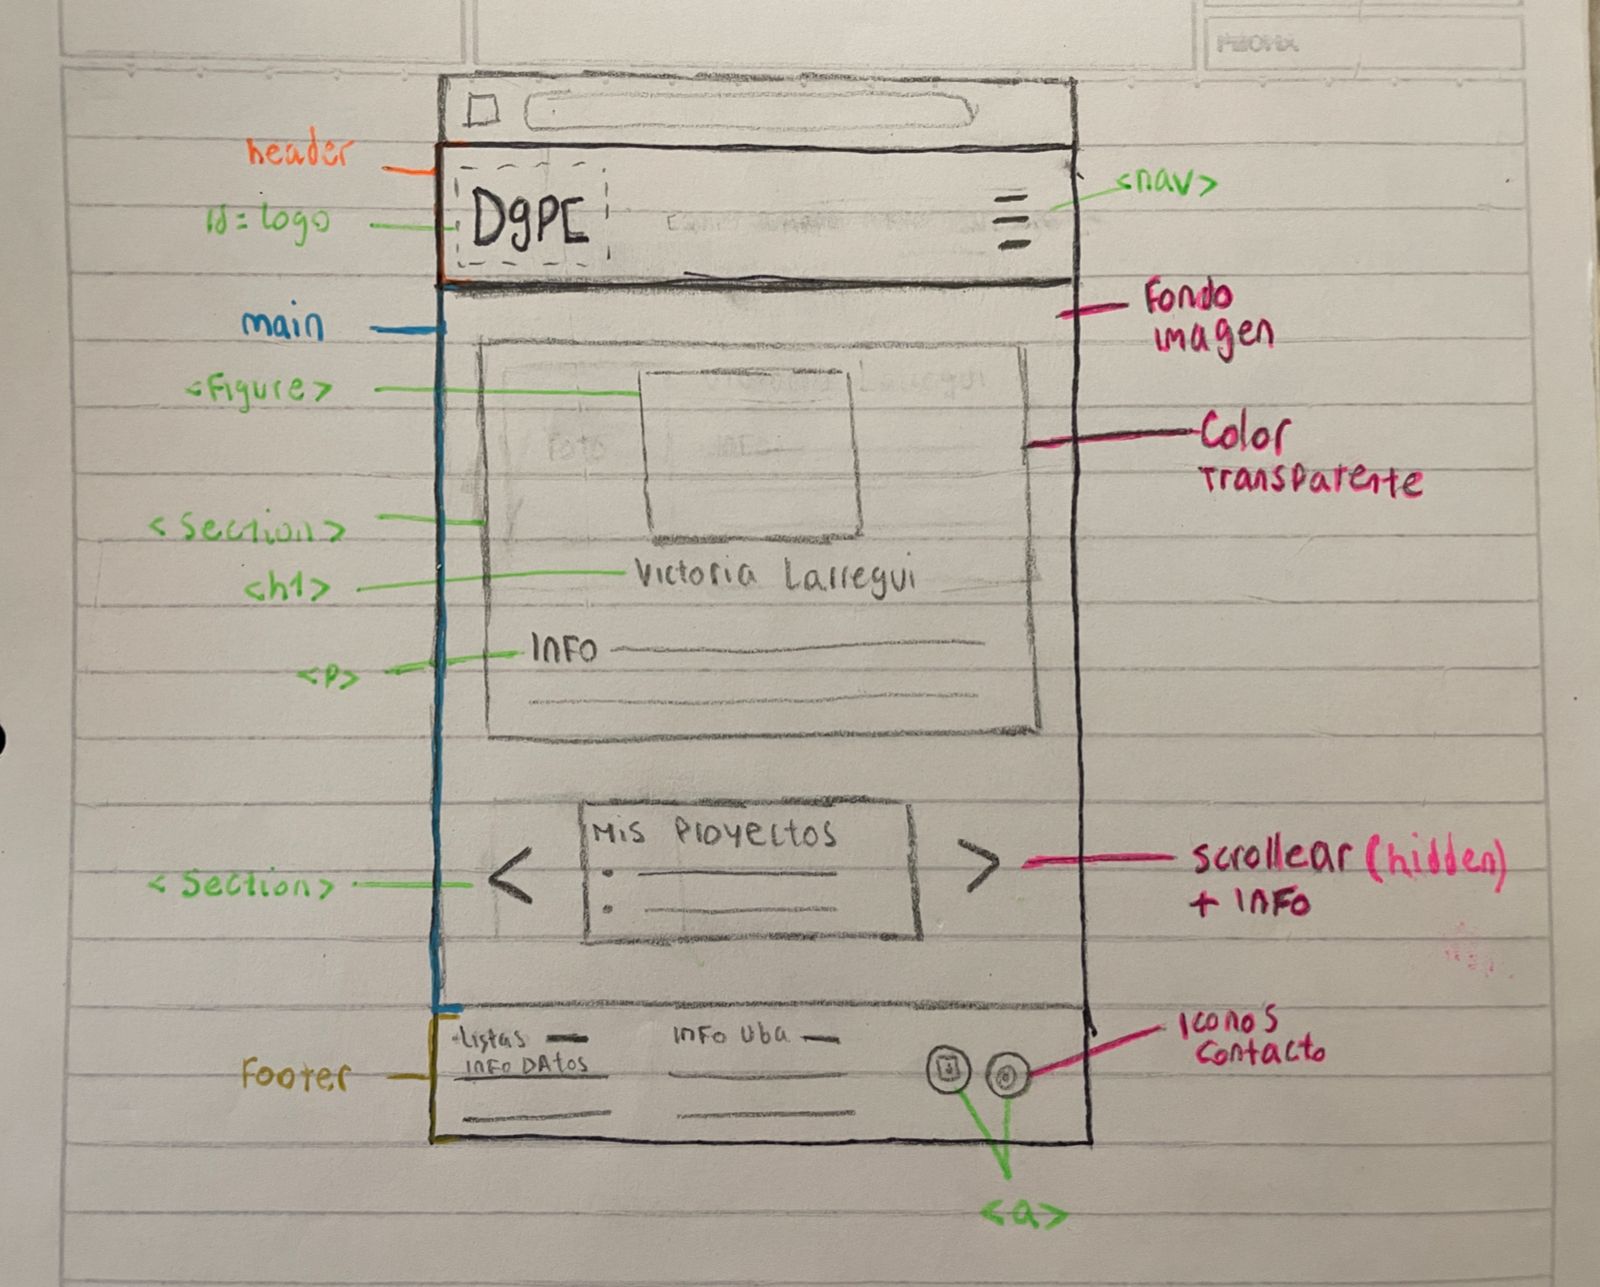 header
id=logo
DgPE
<nav>
main
Fondo
imagen
<Figure>
Color
Transparente
<section>
<h1>
Victoria Larregui
<P>
INFO
Mis Proyectos
<section>
<
>
scrollear (hidden)
+ INFO
Footer
-Listas
INFO DATOS
INFO Uba
Iconos
Contacto
<a>